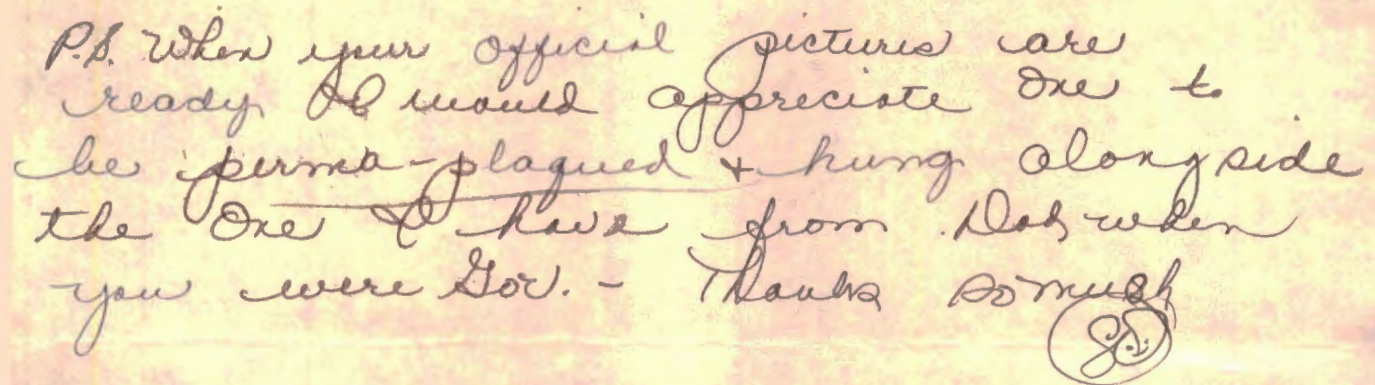 P.S. When your official pictures are
ready I would appreciate one to
be perma-plagued + hung alongside
the one I have from when
you were Gov. - Thanks so much